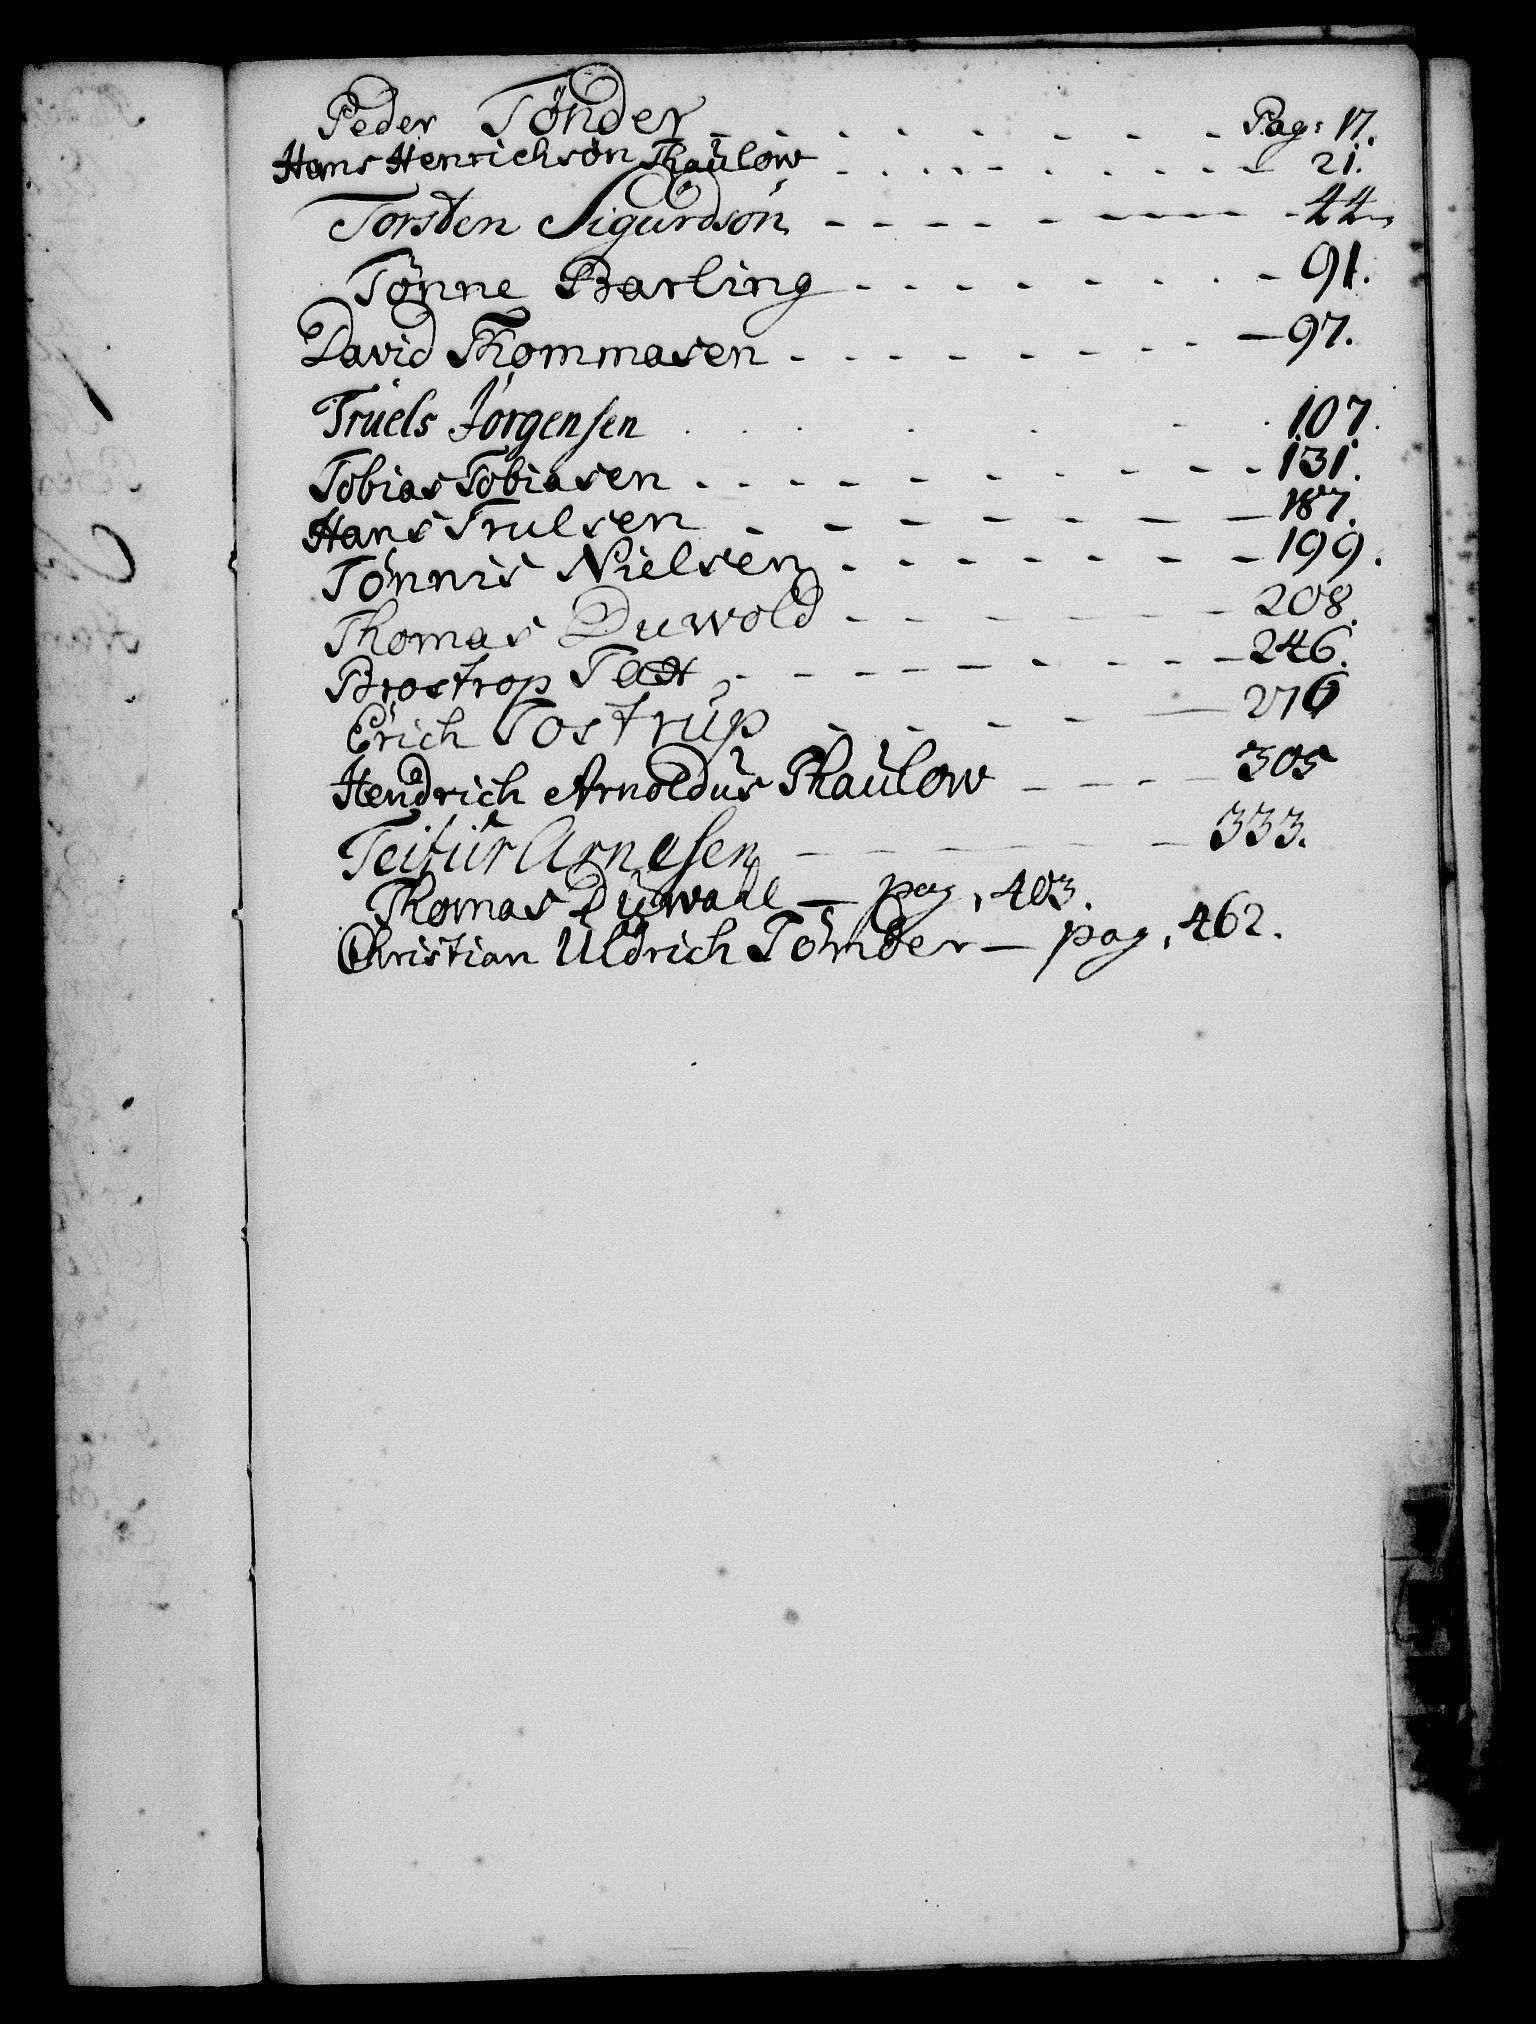 Peder Tønder - - - - - - - - Pag: 17.
Hans Henrichsøn Thaulow - - - - - - - - 21.
Torsten Sigurdsøn - - - - - - - - 44
Tønne Barling - - - - - - - - 91.
David Thommasen - - - - - - - - 97.
Truels Jørgensen . . . . . . 107.
Tobias Tobiasen - - - - - - - - 131.
Hans Trulsen - - - - - - - 187.
Tønnis Nielsen - - - - - - - 199.
Thomas Duwold - - - - - - 208.
Brostrop Tedt - - - - - - - 246.
Erich Tostrup - - - - - 276
Hendrich Arnoldus Thaulow - - - - 305
Teitur Arnesen - - - - - - 333.
Thomas Duwahl — pag, 403.
Christian Uldrich Tönder — pag, 462.